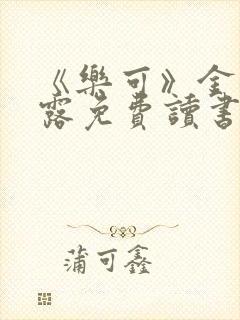 《樂可》金
露免費讀書
蒲可鑫